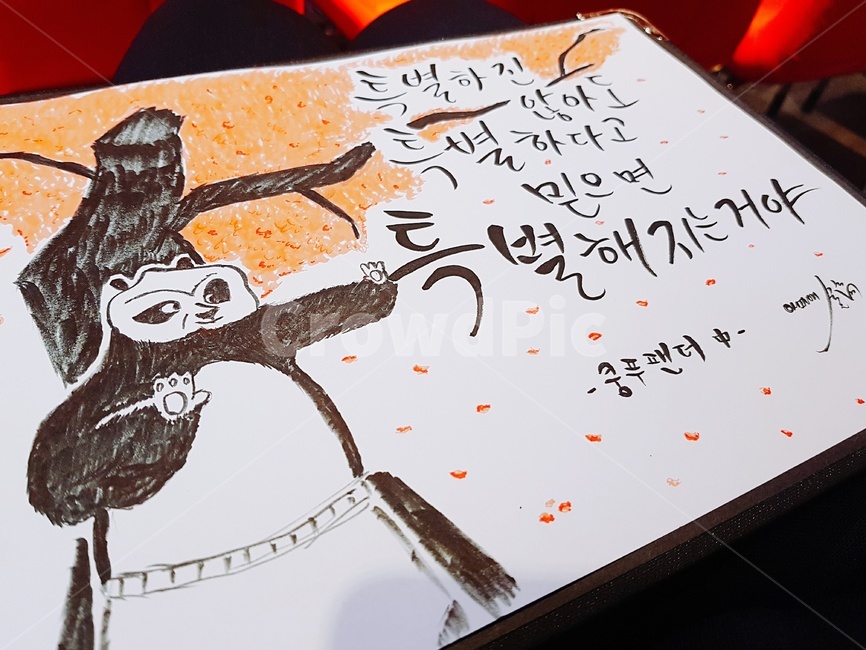 특별하진
않아도
특별하다고
믿으면
특별해지는거야
-쿵푸팬더 中-
CrowdPic